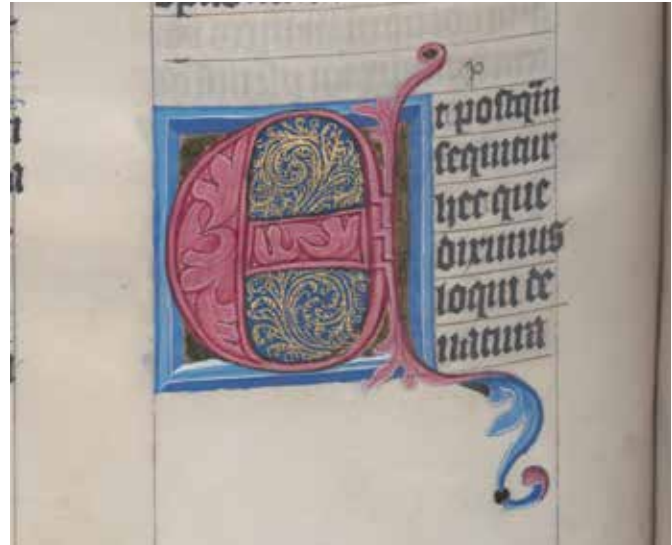 Et postqm̄
sequitur
hec que
diximus
loqui de
natura